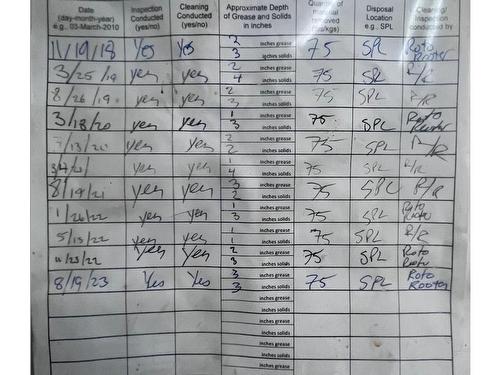 Date (day-month-year) e.g., 03-March-2010 Inspection Conducted (yes/no) Cleaning Conducted (yes/no) Approximate Depth of Grease and Solids in inches Disposal Location e.g., SPL Cleaning/ Inspection conducted by
11/19/18 Yes Yes 2 inches grease 3 inches solids 75 SPL Roto Rooter
3/25/19 yes yes 2 inches grease 4 inches solids 75 SPL R/R
8/26/19 yes yes 2 inches grease 3 inches solids 75 SPL R/R
3/18/20 yes yes 1 inches grease 3 inches solids 75 SPL Roto Rooter
7/13/20 yes yes 2 inches grease 2 inches solids 75 SPL R/R
yes yes 1 inches grease 4 inches solids 75 SPL R/R
8/19/21 yes yes 3 inches grease 2 inches solids 75 SPL R/R
1/26/22 yes yes 1 inches grease 3 inches solids 75 SPL Roto Rooter
5/13/22 yes yes 1 inches grease 1 inches solids 75 SPL R/R
11/23/22 yes yes 2 inches grease 3 inches solids 75 SPL Roto Rooter
8/19/23 Yes Yes 3 inches grease 3 inches solids 75 SPL Roto Rooter
inches grease
inches solids
inches grease
inches solids
inches grease
inches solids
inches grease